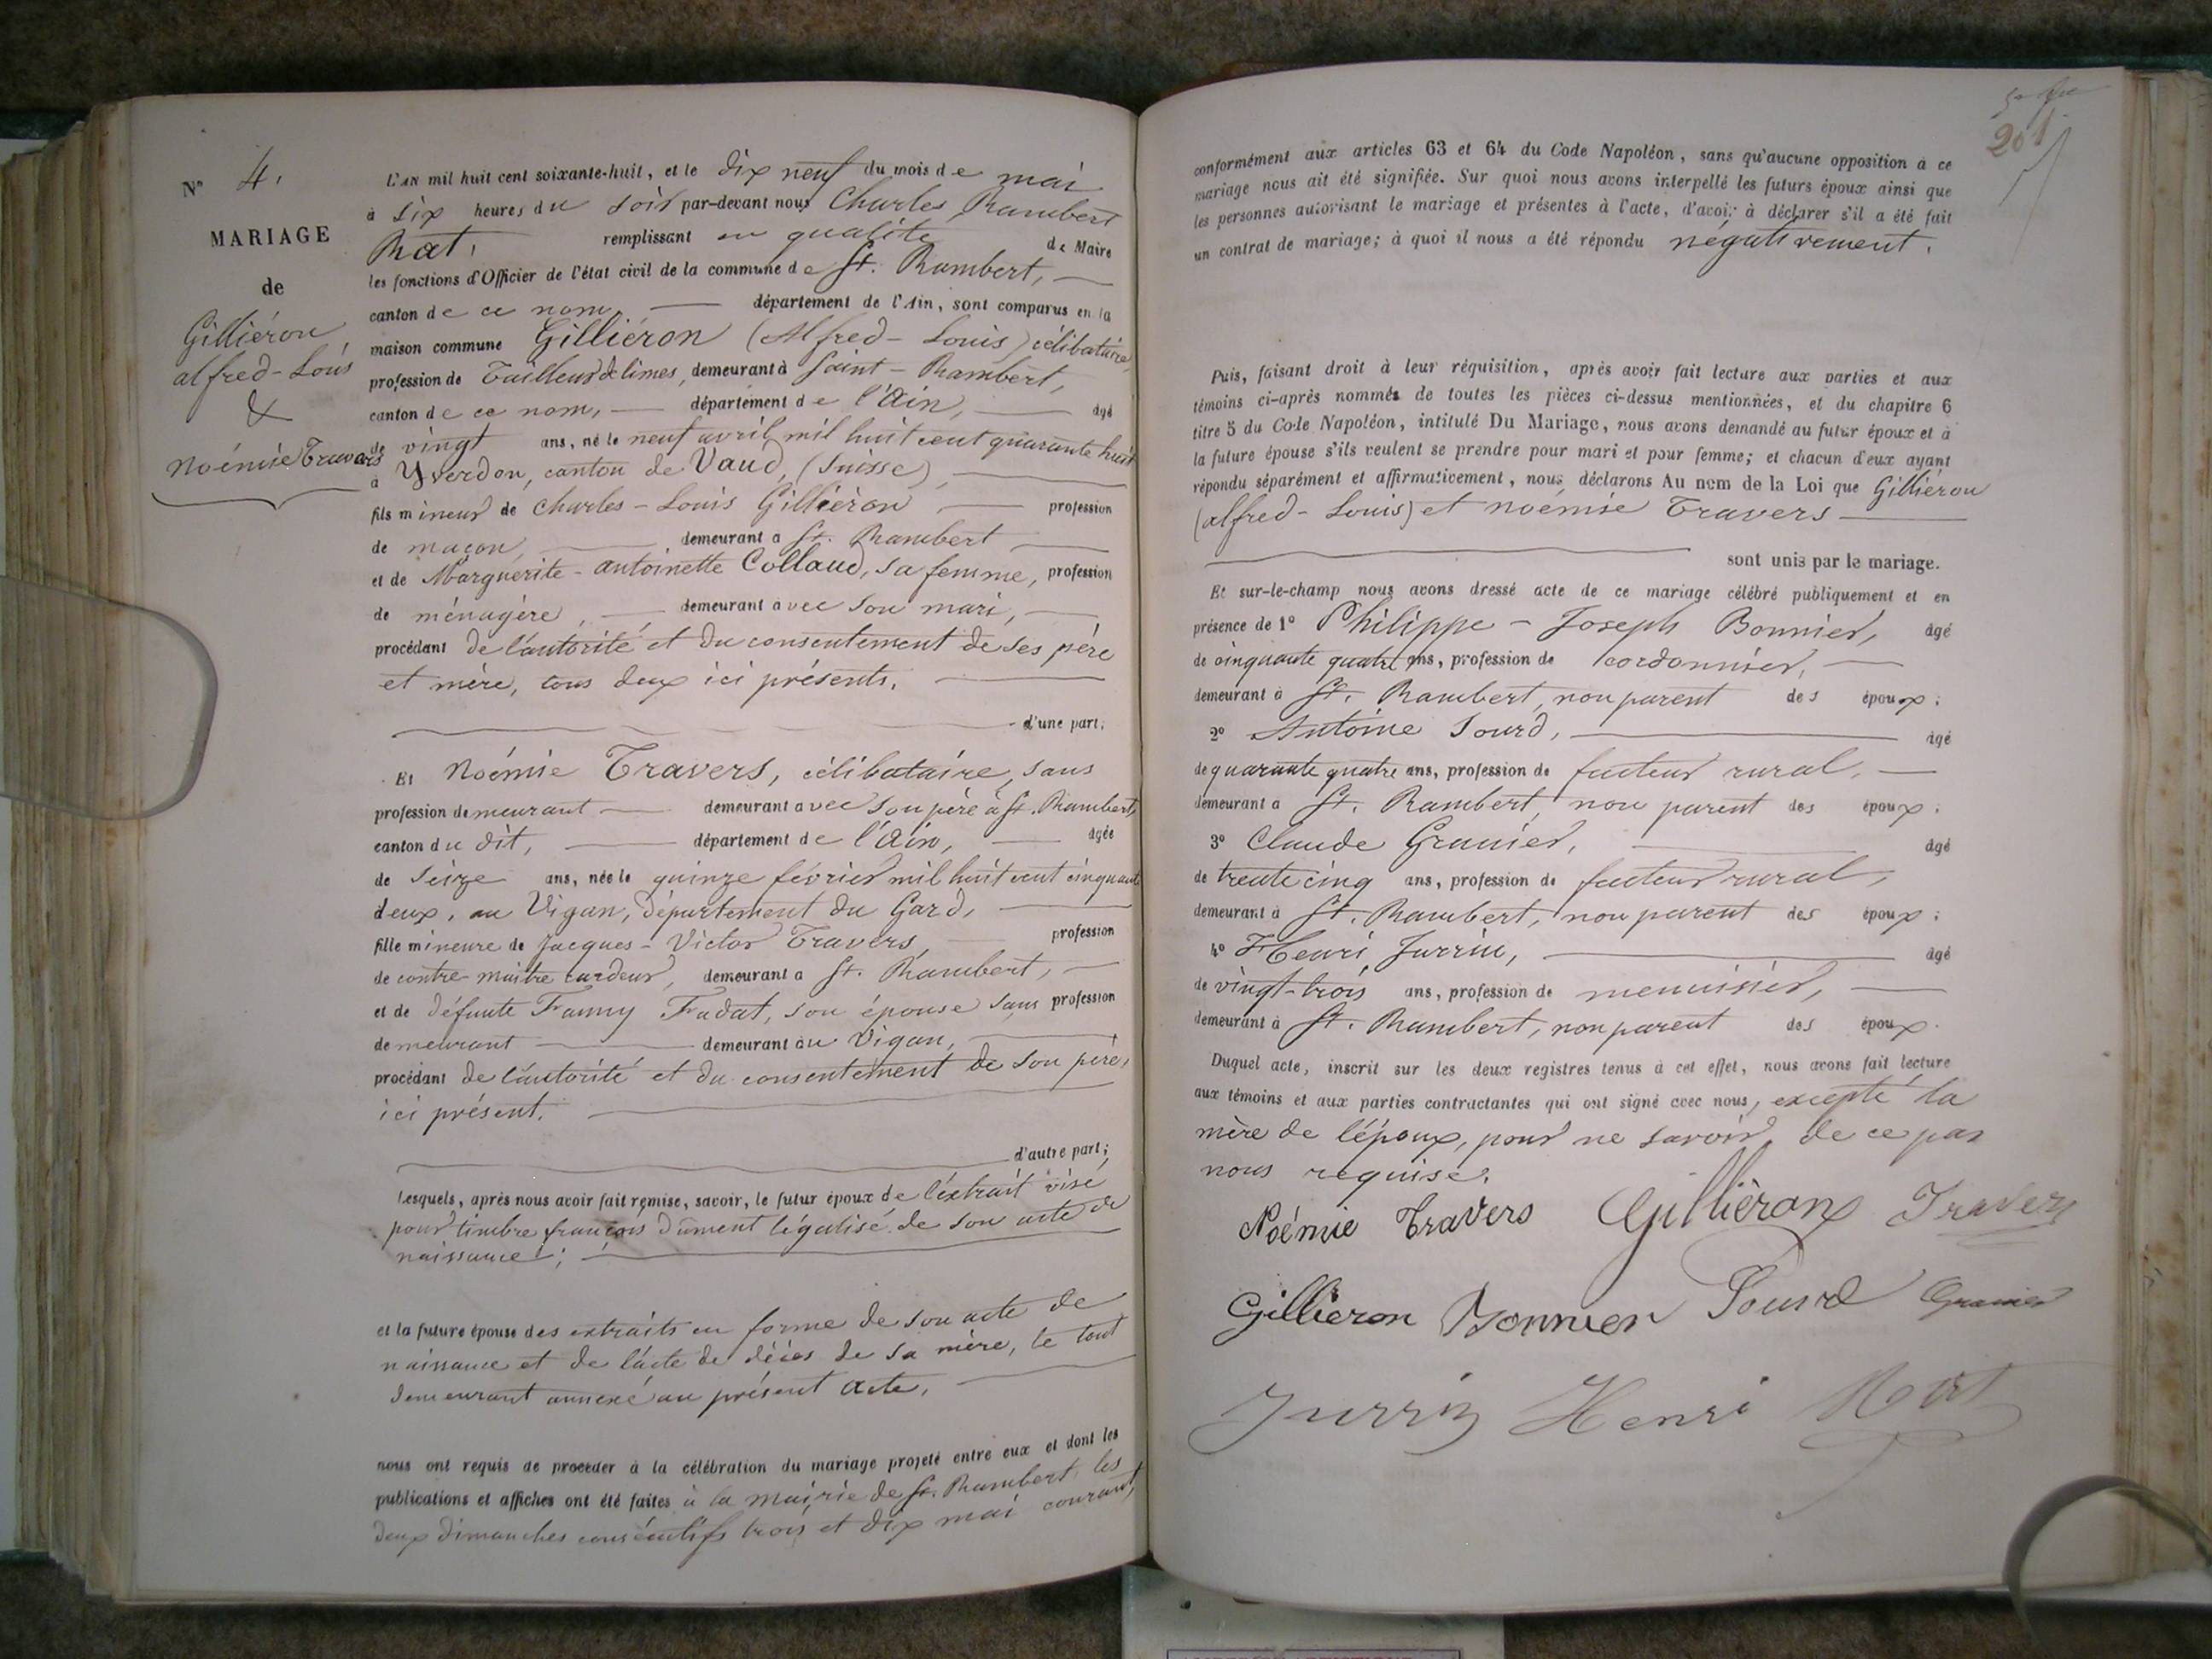 N° 4.
MARIAGE
de
Gilliéron,
alfred-Louis
&
Noémie Travers
L'AN mil huit cent soixante-huit, et le dix neuf du mois de mai
à six heures du soir par-devant nous Charles Rambert
Rat, remplissant en qualité de Maire
les fonctions d'Officier de l'état civil de la commune de St. Rambert,
canton de ce nom, département de l'Ain, sont comparus en la
maison commune Gilliéron (Alfred-Louis) célibataire,
profession de Tailleur de limes, demeurant à Saint-Rambert,
canton de ce nom, département de l'Ain, âgé
de vingt ans, né le neuf avril mil huit cent quarante huit
à Yverdon, canton de Vaud, (Suisse),
fils mineur de Charles-Louis Gilliéron, profession
de maçon, demeurant à St. Rambert
et de Marguérite-antoinette Collaud, sa femme, profession
de ménagère, demeurant avec son mari,
procédant de l'autorité et du consentement de ses père
et mère, tous deux ici présents.
d'une part;
Et Noémie Travers, célibataire, sans
profession demeurant demeurant avec son père à St. Rambert,
canton du dit, département de l'Ain, âgée
de Seize ans, née le quinze février mil huit cent cinquante
deux, au Vigan, département du Gard,
fille mineure de Jacques-Victor Travers, profession
de contre-maitre cardeur, demeurant à St. Rambert,
et de défunte Fanny Fadat, son épouse sans profession
demeurant demeurant au Vigan,
procédant de l'autorité et du consentement de son père,
ici présent.
d'autre part;
Lesquels, après nous avoir fait remise, savoir, le futur époux de l'extrait visé
pour timbre français dûment légalisé de son acte de
naissance;
et la future épouse des extraits en forme de son acte de
naissance et de l'acte de décès de sa mère, le tout
demeurant annexé au présent acte,
nous ont requis de procéder à la célébration du mariage projeté entre eux et dont les
publications et affiches ont été faites à la mairie de St. Rambert, les
deux dimanches consécutifs trois et dix mai courant,
201
conformément aux articles 63 et 64 du Code Napoléon, sans qu'aucune opposition à ce
mariage nous ait été signifiée. Sur quoi nous avons interpellé les futurs époux ainsi que
les personnes autorisant le mariage et présentes à l'acte, d'avoir à déclarer s'il a été fait
un contrat de mariage; à quoi il nous a été répondu négativement.
Puis, faisant droit à leur réquisition, après avoir fait lecture aux parties et aux
témoins ci-après nommés de toutes les pièces ci-dessus mentionnées, et du chapitre 6
titre 5 du Code Napoléon, intitulé Du Mariage, nous avons demandé au futur époux et à
la future épouse s'ils veulent se prendre pour mari et pour femme; et chacun d'eux ayant
répondu séparément et affirmativement, nous déclarons Au nom de la Loi que Gilliéron
(alfred-Louis) et noémie Travers
sont unis par le mariage.
Et sur-le-champ nous avons dressé acte de ce mariage célébré publiquement et en
présence de 1° Philippe-Joseph Bonnier, âgé
de cinquante quatre ans, profession de cordonnier,
demeurant à St. Rambert, non parent des époux;
2° Antoine Sourd, âgé
de quarante quatre ans, profession de facteur rural,
demeurant à St. Rambert, non parent des époux;
3° Claude Granier, âgé
de trente cinq ans, profession de facteur rural,
demeurant à St. Rambert, non parent des époux;
4° Henri Jurrin, âgé
de vingt-trois ans, profession de menuisier,
demeurant à St. Rambert, non parent des époux.
Duquel acte, inscrit sur les deux registres tenus à cet effet, nous avons fait lecture
aux témoins et aux parties contractantes qui ont signé avec nous, excepté la
mère de l'époux, pour ne savoir, de ce par
nous requise.
Noémie Travers Gilliéron Travers
Gilliéron Bonnier Sourd Granier
Jurrin Henri Rat